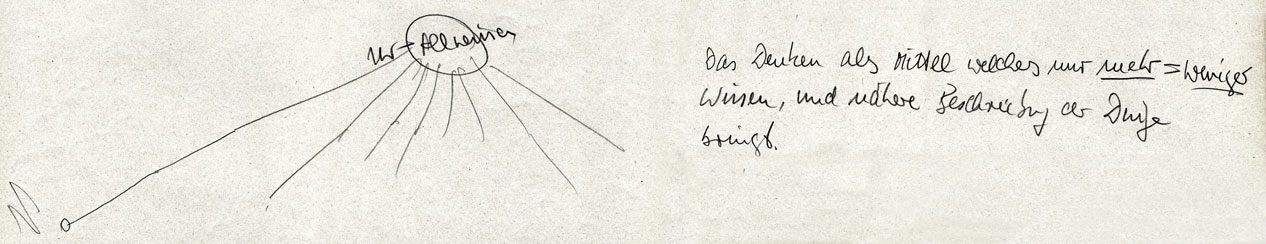 Ur-Allwissen
Das Denken als Mittel welches nur mehr = weniger
Wissen, und nähere Beschreibung der Dinge
bringt.